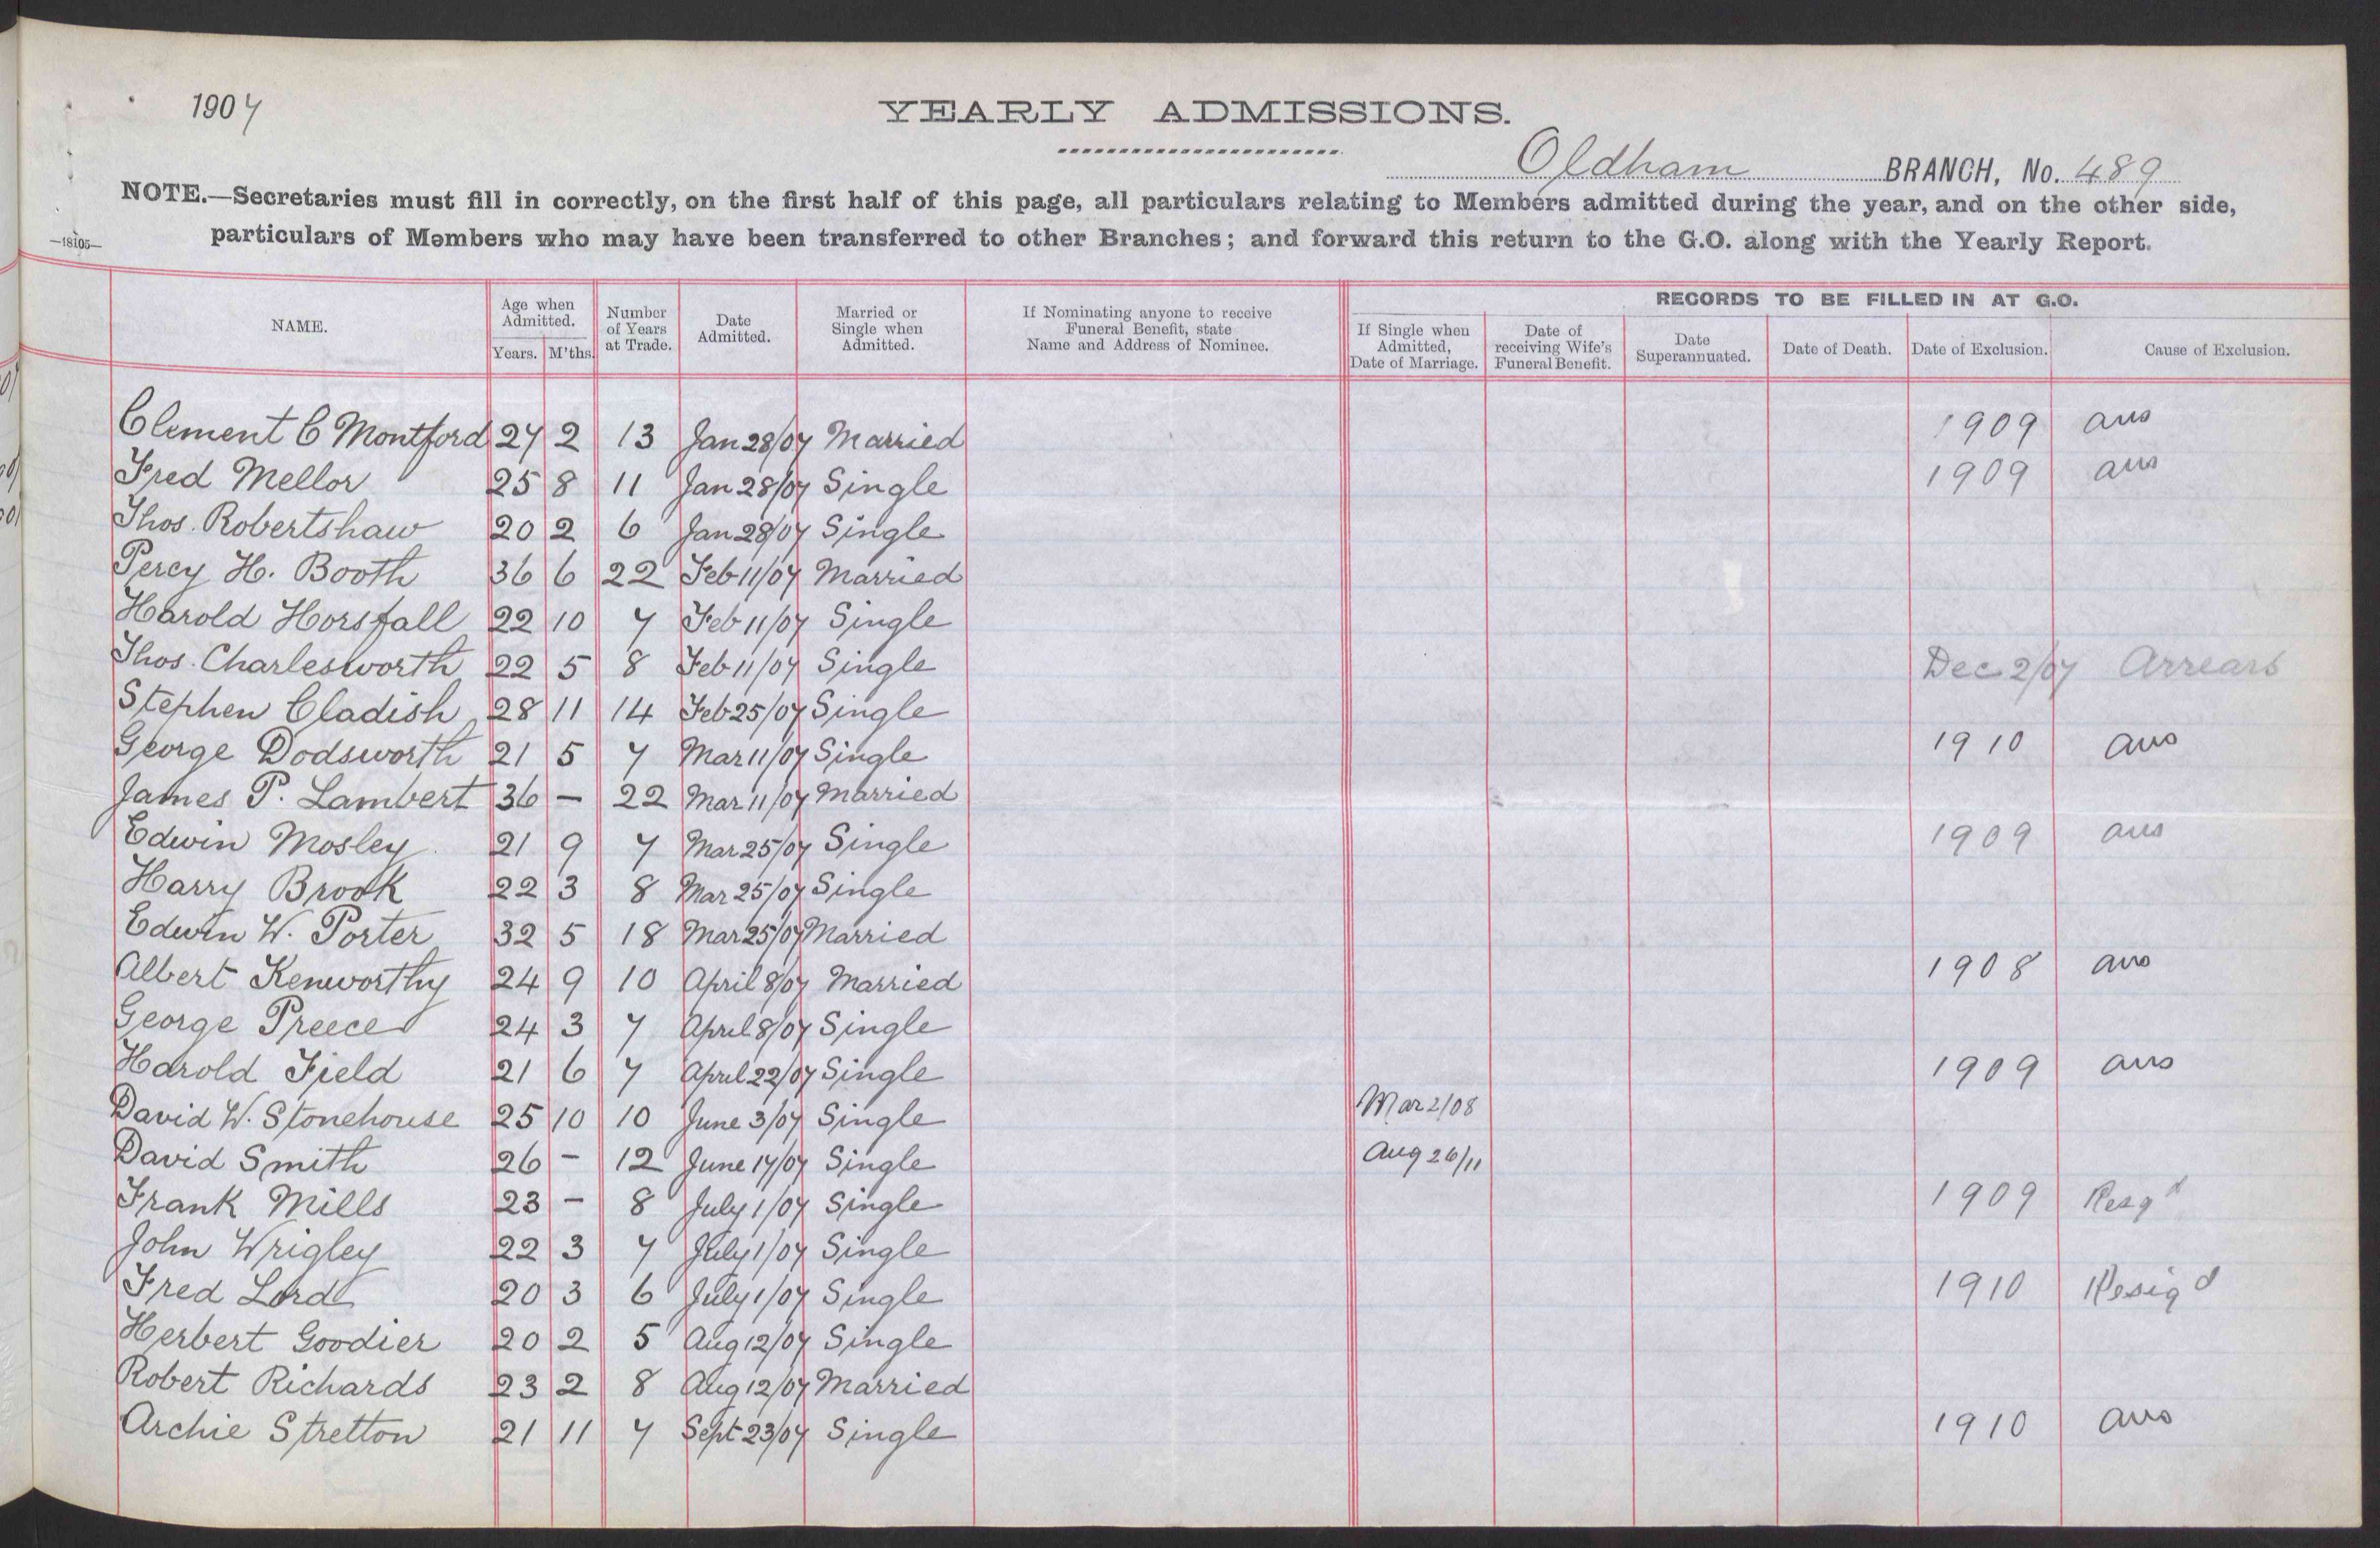 1907
YEARLY ADMISSIONS.
Oldham BRANCH, No. 489
NOTE.—Secretaries must fill in correctly, on the first half of this page, all particulars relating to Members admitted during the year, and on the other side,
—18105— particulars of Members who may have been transferred to other Branches; and forward this return to the G.O. along with the Yearly Report.
RECORDS TO BE FILLED IN AT G.O.
NAME. Age when Admitted. Years. M'ths. Number of Years at Trade. Date Admitted. Married or Single when Admitted. If Nominating anyone to receive Funeral Benefit, state Name and Address of Nominee. If Single when Admitted, Date of Marriage. Date of receiving Wife's Funeral Benefit. Date Superannuated. Date of Death. Date of Exclusion. Cause of Exclusion.
Clement C Montford 27 2 13 Jan 28/07 Married 1909 ars
Fred Mellor 25 8 11 Jan 28/07 Single 1909 ars
Thos. Robertshaw 20 2 6 Jan 28/07 Single
Percy H. Booth 36 6 22 Feb 11/07 Married
Harold Horsfall 22 10 7 Feb 11/07 Single
Thos. Charlesworth 22 5 8 Feb 11/07 Single Dec 2/07 Arrears
Stephen Cladish 28 11 14 Feb 25/07 Single
George Dodsworth 21 5 7 Mar 11/07 Single 1910 ars
James P. Lambert 36 — 22 Mar 11/07 Married
Edwin Mosley 21 9 7 Mar 25/07 Single 1909 ars
Harry Brook 22 3 8 Mar 25/07 Single
Edwin W. Porter 32 5 18 Mar 25/07 Married
Albert Kenworthy 24 9 10 April 8/07 Married 1908 ars
George Preece 24 3 7 April 8/07 Single
Harold Field 21 6 7 April 22/07 Single 1909 ars
David W. Stonehouse 25 10 10 June 3/07 Single Mar 2/08
David Smith 26 — 12 June 17/07 Single Aug 26/11
Frank Mills 23 — 8 July 1/07 Single 1909 Resgd
John Wrigley 22 3 7 July 1/07 Single
Fred Lord 20 3 6 July 1/07 Single 1910 Resigd
Herbert Goodier 20 2 5 Aug 12/07 Single
Robert Richards 23 2 8 Aug 12/07 Married
Archie Stretton 21 11 7 Sept 23/07 Single 1910 ars